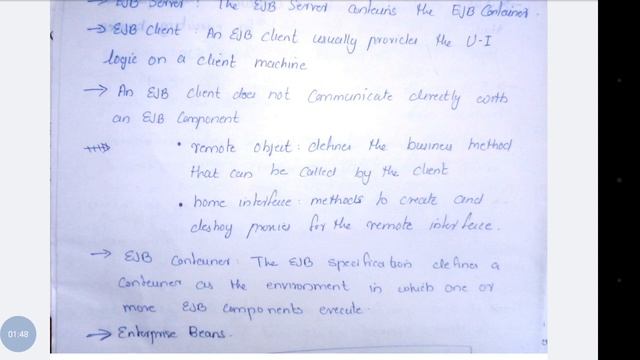 → EJB Server : The EJB Server contains the EJB Container.
→ EJB Client : An EJB client usually provides the U-I
logic on a client machine
→ An EJB client does not communicate directly with
an EJB Component
• remote object : defines the business method
that can be called by the client
• home interface : methods to create and
destroy proxies for the remote interface.
→ EJB Container : The EJB specification defines a
Container as the environment in which one or
more EJB components execute.
→ Enterprise Beans.
01:48